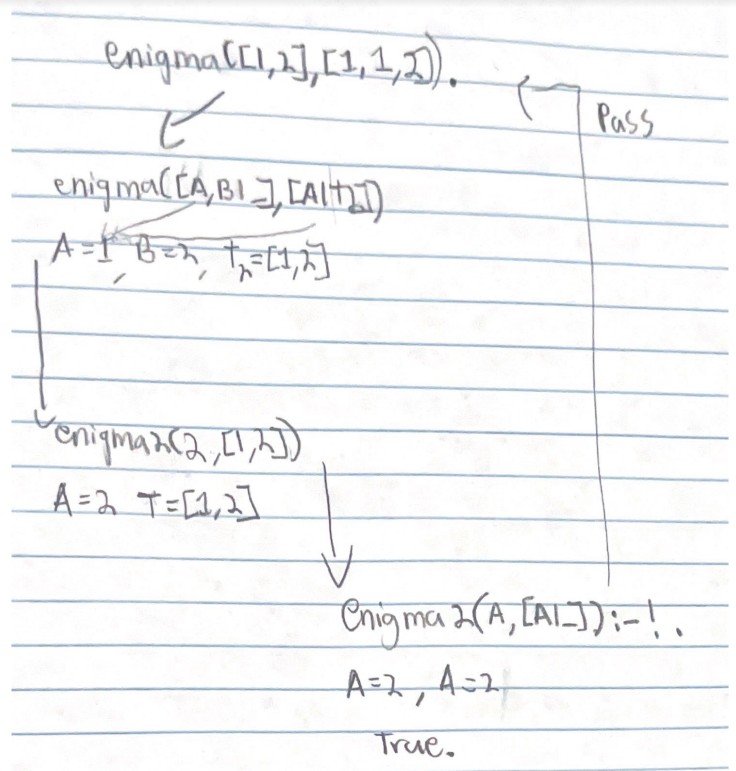 enigma([1,2],[1,1,2]).
Pass
enigma([A,B|_],[A|T2])
A=1, B=2, T2=[1,2]
enigma2(2,[1,2])
A=2 T=[1,2]
enigma2(A,[A|_]):-!.
A=2, A=2
True.